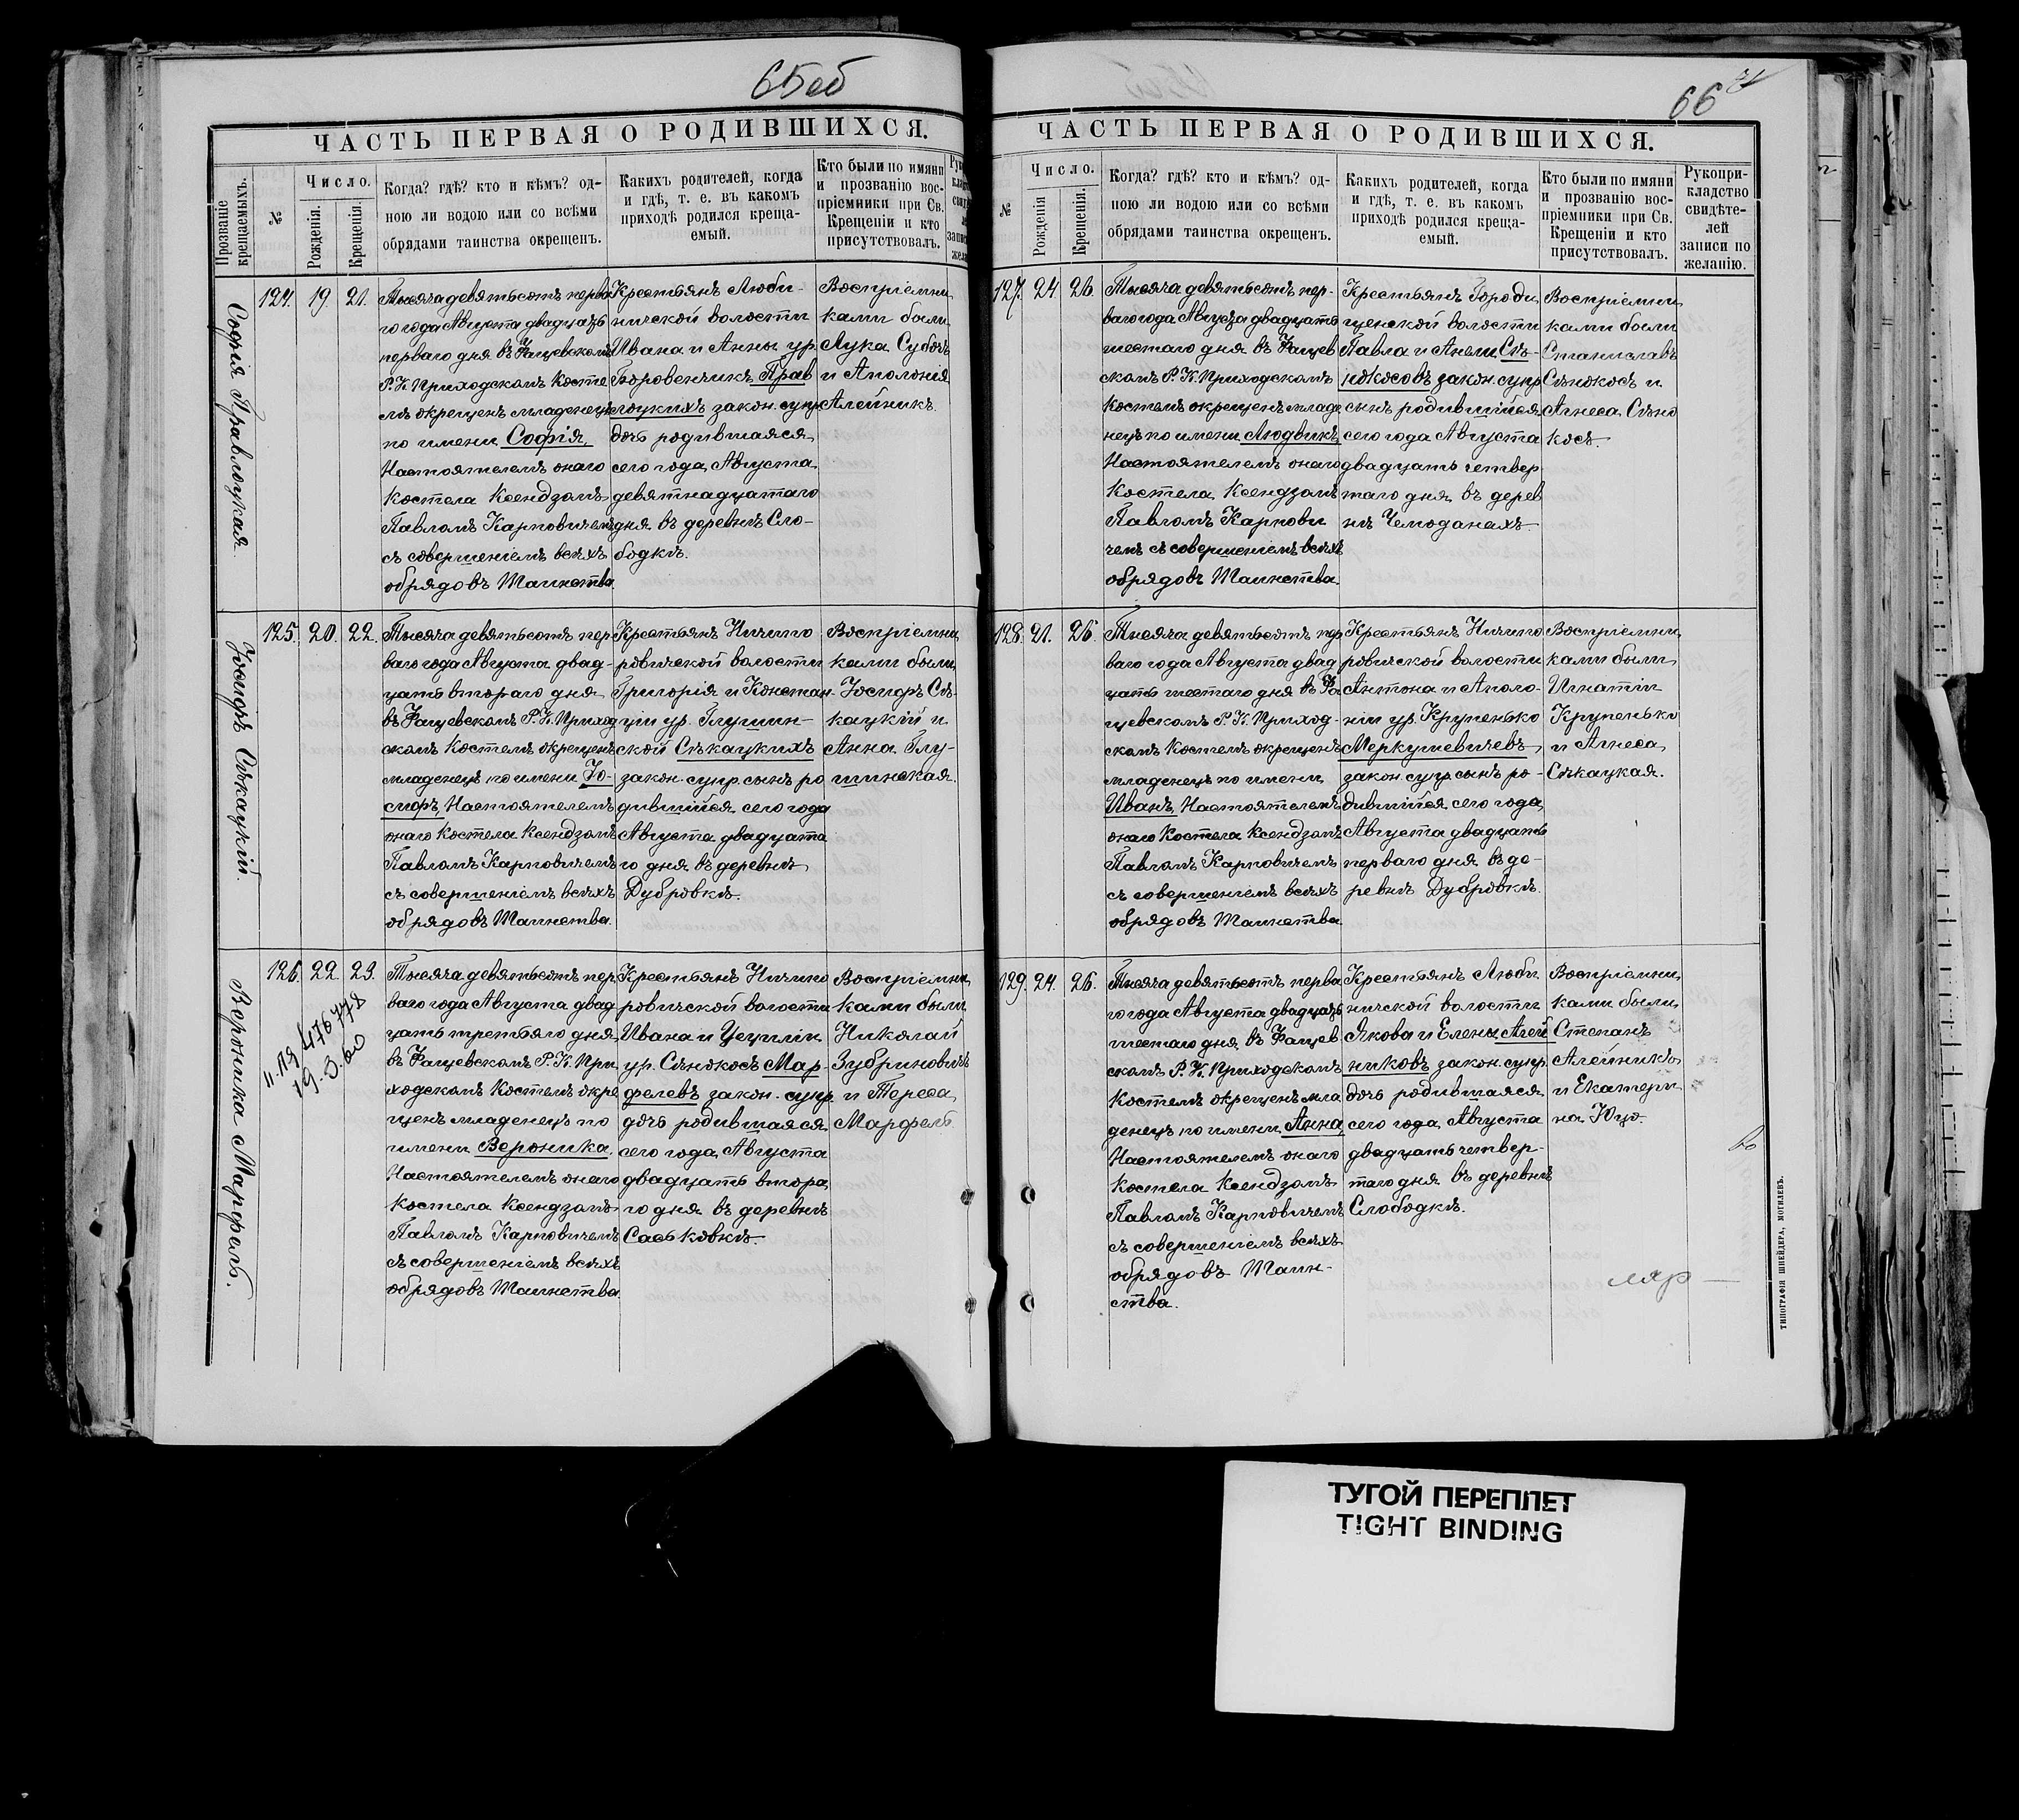 65об
ЧАСТЬ ПЕРВАЯ О РОДИВШИХСЯ.
Прозваніе крещаемыхъ.
№
Число.
Рожденія.
Крещенія.
Когда? гдѣ? кто и кѣмъ? од-
ною ли водою или со всѣми
обрядами таинства окрещенъ.
Какихъ родителей, когда
и гдѣ, т. е. въ какомъ
приходѣ родился креща-
емый.
Кто были по имяни
и прозванію вос-
пріемники при Св.
Крещеніи и кто
присутствовалъ.
Софія Правлоцкая.
124. 19. 21.
Тысяча девятьсотъ перва
го года Августа двадцать
перваго дня въ Фащевскомъ
Р. К. Приходскомъ Косте
лѣ окрещенъ младенецъ
по имени София,
Настоятелемъ онаго
Костела Ксендзомъ
Павломъ Карповичемъ
съ совершеніемъ всѣхъ
обрядовъ Таинства.
Крестьянъ Люби-
ничской волости
Ивана и Анны ур.
Боровенчикъ Прав
лоцкихъ закон. супр.
дочь родившаяся
сего года Августа
девятнадцатаго
дня въ деревнѣ Сло-
бодкѣ.
Воспріемни
ками были
Лука Субочъ
и Аполонія
Алейникъ.
Іосифъ Сѣкацкій.
125. 20. 22.
Тысяча девятьсотъ пер
ваго года Августа двад-
цать втораго дня
въ Фащевскомъ Р. К. Приход
скомъ Костелѣ окрещенъ
младенецъ по имени Іо-
сифъ, Настоятелемъ
онаго Костела Ксендзомъ
Павломъ Карповичемъ
съ совершеніемъ всѣхъ
обрядовъ Таинства.
Крестьянъ Ничипо
ровичской волости
Григорія и Констан-
ціи ур. Глушин-
ской Сѣкацкихъ
закон. супр. сынъ ро
дившійся сего года
Августа двадцата
го дня въ деревнѣ
Дубровкѣ.
Воспріемни
ками были
Іосифъ Сѣ-
кацкій и
Анна Глу-
шинская.
Вероника Марфель.
126. 22. 23.
II.ПЯ 476778
19.3.60
Тысяча девятьсотъ пер
ваго года Августа двад
цать третьяго дня
въ Фащевскомъ Р. К. При
ходскомъ Костелѣ окре
щенъ младенецъ по
имени Вероника.
Настоятелемъ онаго
Костела Ксендзомъ
Павломъ Карповичемъ
съ совершеніемъ всѣхъ
обрядовъ Таинства.
Крестьянъ Ничипо
ровичской волости
Ивана и Цециліи
ур. Сѣнокосъ Мар-
фелевъ закон. супр.
дочь родившаяся
сего года Августа
двадцать втора
го дня въ деревнѣ
Саськовкѣ.
Воспріемни
ками были
Николай
Зубриновичъ
и Тереса
Марфель.
66
ЧАСТЬ ПЕРВАЯ О РОДИВШИХСЯ.
№
Число.
Рожденія
Крещенія.
Когда? гдѣ? кто и кѣмъ? од-
ною ли водою или со всѣми
обрядами таинства окрещенъ.
Какихъ родителей, когда
и гдѣ, т. е. въ какомъ
приходѣ родился креща-
емый.
Кто были по имяни
и прозванію вос-
пріемники при Св.
Крещеніи и кто
присутствовалъ.
Рукопри-
кладство
свидѣте-
лей
записи по
желанію.
127. 24. 26.
Тысяча девятьсотъ пер-
ваго года Августа двадцать
шестаго дня въ Фащев
скомъ Р. К. Приходскомъ
Костелѣ окрещенъ младе
нецъ по имени Людвикъ,
Настоятелемъ онаго
Костела Ксендзомъ
Павломъ Карпови
чемъ съ совершеніемъ всѣхъ
обрядовъ Таинства.
Крестьянъ Городи
щенской волости
Павла и Анели Сѣ-
нокосовъ закон. супр.
сынъ родившійся
сего года Августа
двадцать четвер
таго дня въ дерев
нѣ Чемоданахъ.
Воспріемни
ками были
Станиславъ
Сѣнокосъ и
Агнеса Сѣно
косъ.
128. 21. 26.
Тысяча девятьсотъ пер
ваго года Августа двад
цать шестаго дня въ Фа
щевскомъ Р. К. Приход-
скомъ Костелѣ окрещенъ
младенецъ по имени
Иванъ, Настоятелемъ
онаго Костела Ксендзомъ
Павломъ Карповичемъ
съ совершеніемъ всѣхъ
обрядовъ Таинства.
Крестьянъ Ничипо
ровичской волости
Антона и Аполо-
ніи ур. Крупенько
Меркушевичевъ
закон. супр. сынъ ро-
дившійся сего года
Августа двадцать
перваго дня въ де-
ревнѣ Дубровкѣ.
Воспріемни
ками были
Игнатій
Крупенько
и Агнеса
Сѣкацкая.
129. 24. 26.
Тысяча девятьсотъ перва
го года Августа двадцать
шестаго дня въ Фащев
скомъ Р. К. Приходскомъ
Костелѣ окрещенъ мла
денецъ по имени Анна,
Настоятелемъ онаго
Костела Ксендзомъ
Павломъ Карповичемъ
съ совершеніемъ всѣхъ
обрядовъ Таин-
ства.
Крестьянъ Люби
ничской волости
Якова и Елены Алей
никовъ закон. супр.
дочь родившаяся
сего года Августа
двадцать четвер-
таго дня въ деревнѣ
Слободкѣ.
Воспріемни
ками были
Степанъ
Алейникъ
и Екатери
на Юцо.
ТИПОГРАФІЯ ШНЕЙДЕРА, МОГИЛЕВЪ.
ТУГОЙ ПЕРЕПЛЕТ
TIGHT BINDING